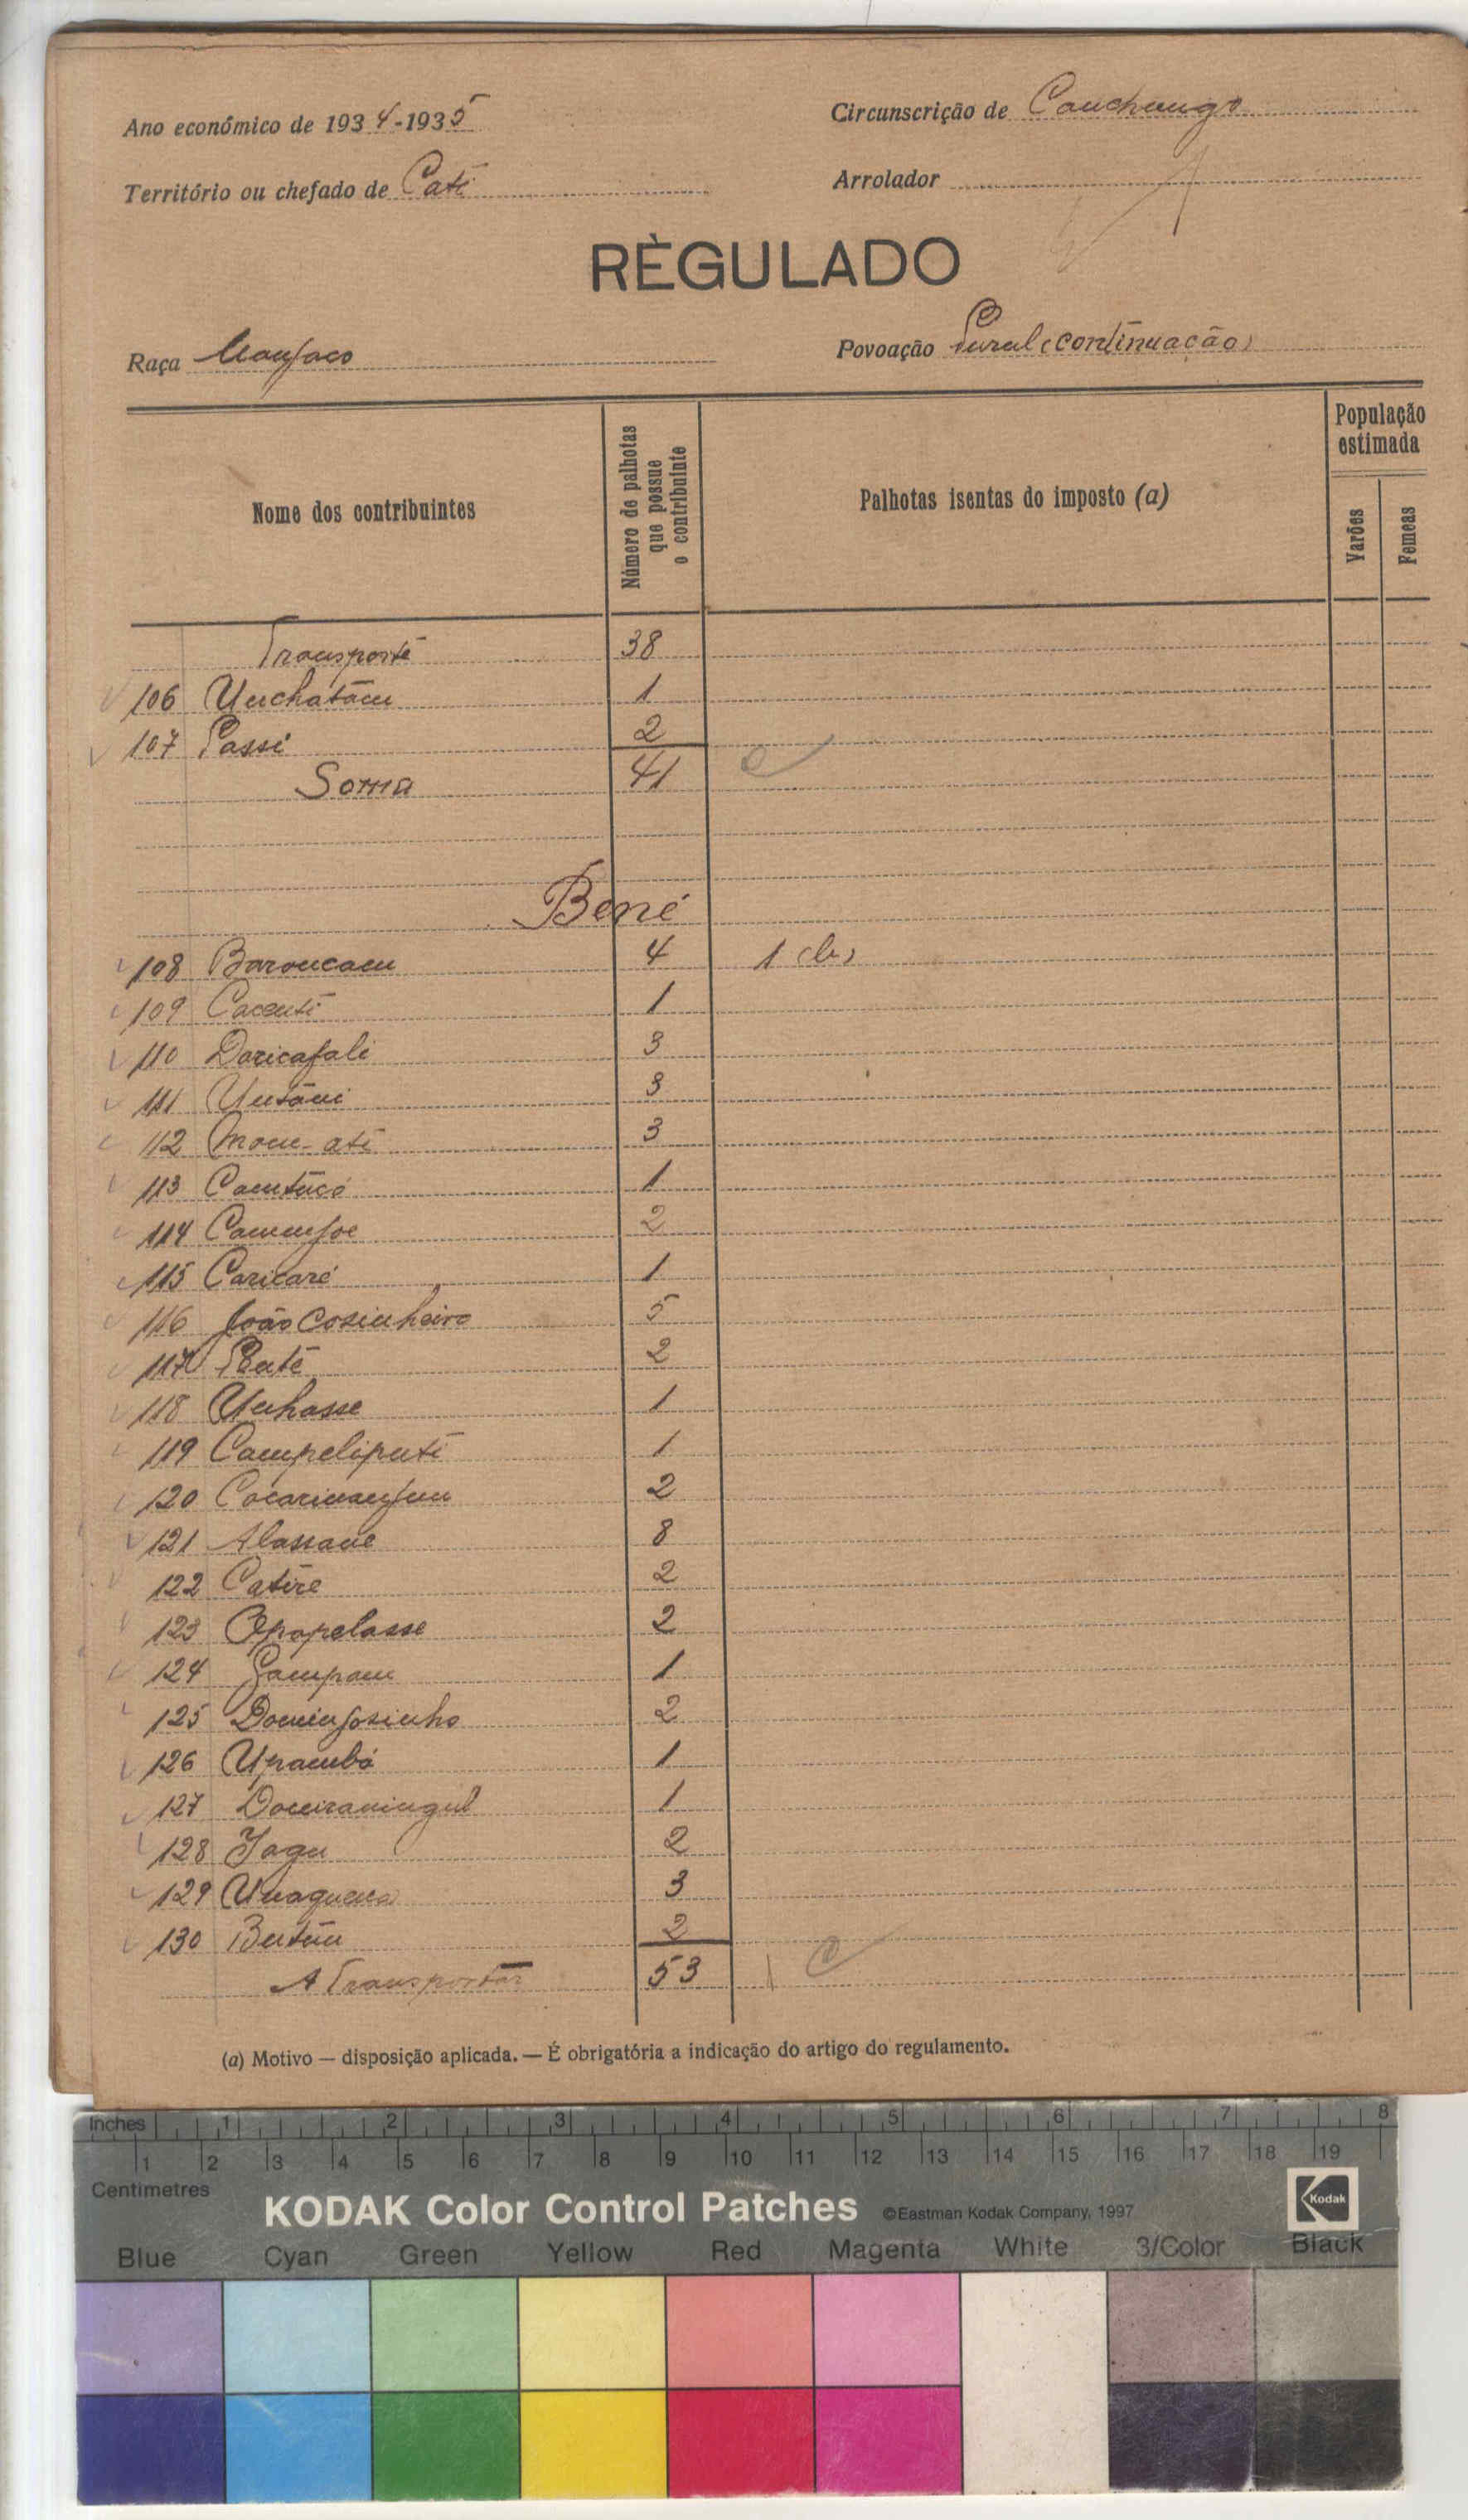 Ano económico de 1934-1935
Circunscrição de Canchungo
Território ou chefado de Cati
Arrolador
RÈGULADO
Raça Manjaco
Povoação Pural (continuação)
Nome dos contribuintes
Número de palhotas que possue o contribuinte
Palhotas isentas do imposto (a)
População estimada
Varões
Femeas
Transporte 38
106 Unchatam 1
107 Passi 2
Soma 41
Bené
108 Baroncam 4 1 (b)
109 Cacenti 1
110 Daricafali 3
111 Untani 3
112 Mam-ati 3
113 Camtucó 1
114 2
115 Caricaré 1
116 João Cosinheiro 5
117 Penté 2
118 Unhasse 1
119 Campeliputi 1
120 2
121 Alassane 8
122 Catire 2
123 Opopelasse 2
124 Gampam 1
125 Domingosinho 2
126 Upambá 1
127 Domiraningul 1
128 Jagu 2
129 3
130 Bentim 2
A Transportar 53 1
(a) Motivo — disposição aplicada. — É obrigatória a indicação do artigo do regulamento.
Inches 1 2 3 4 5 6 7 8
1 2 3 4 5 6 7 8 9 10 11 12 13 14 15 16 17 18 19
Centimetres
KODAK Color Control Patches ©Eastman Kodak Company, 1997 Kodak
Blue Cyan Green Yellow Red Magenta White 3/Color Black